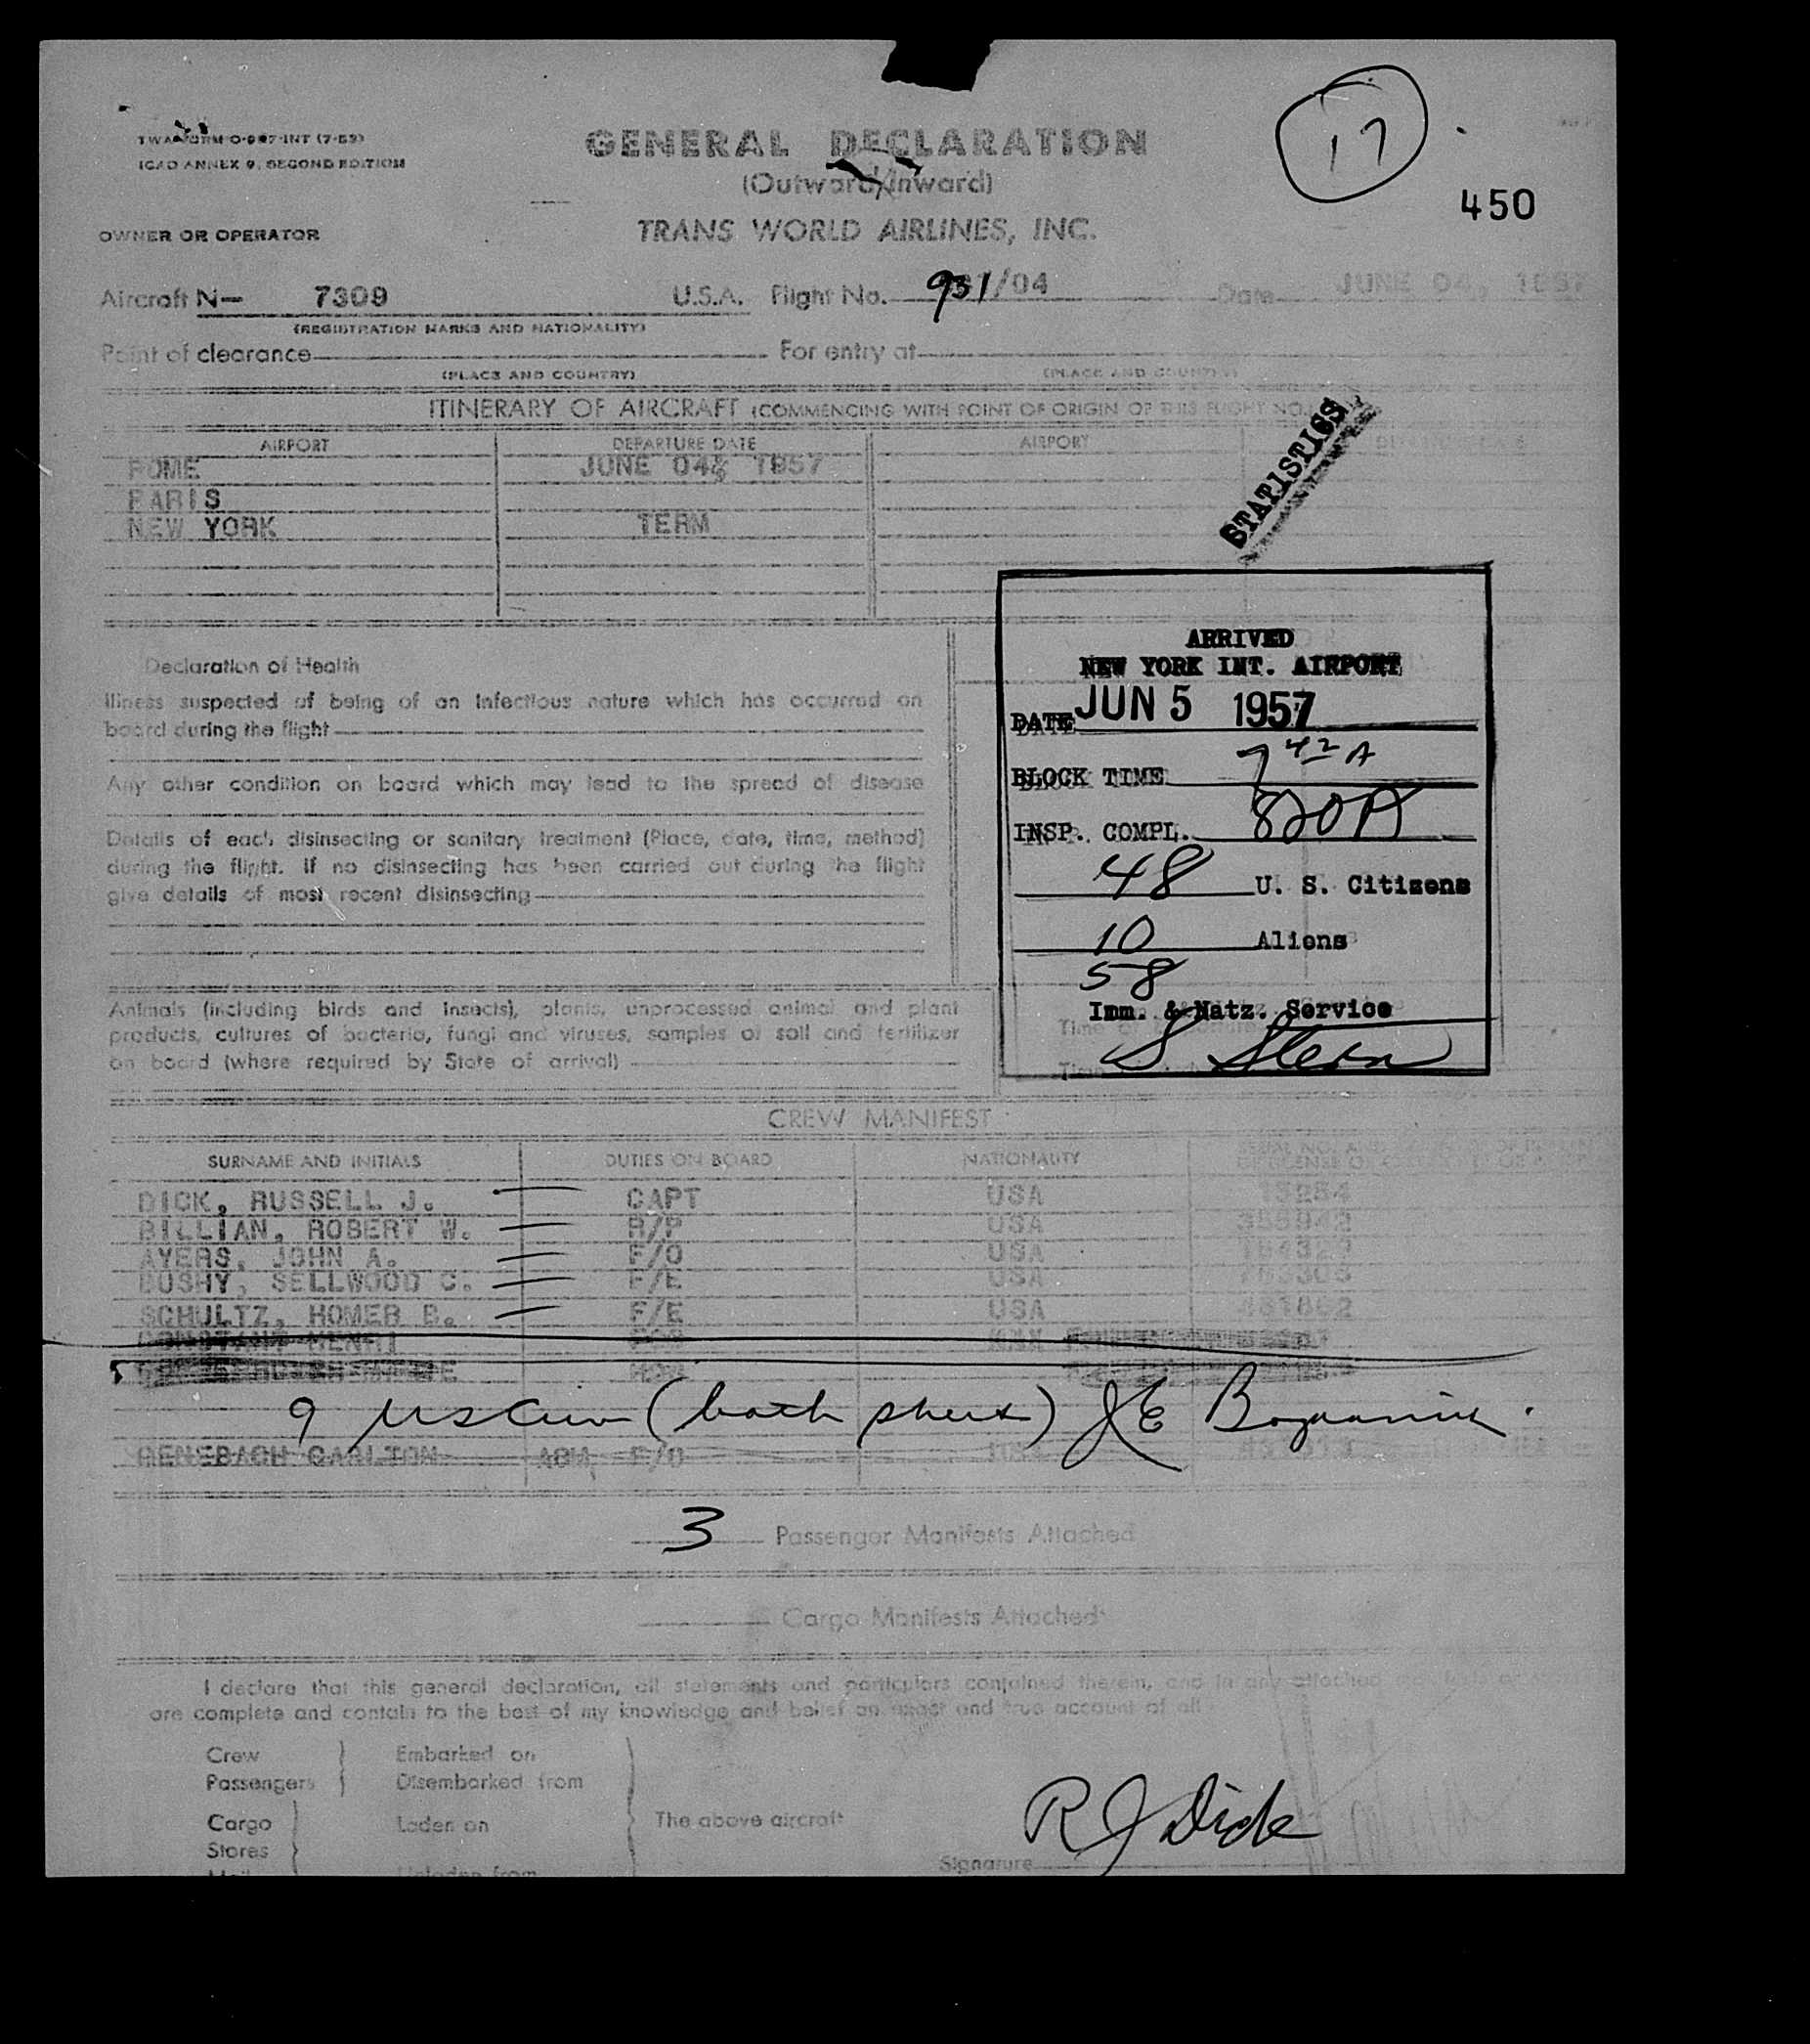 GENERAL DECLARATION
(Outward/Inward)
TWA FORM O-997-INT (7-53)
ICAO ANNEX 9, SECOND EDITION
17
450
OWNER OR OPERATOR
TRANS WORLD AIRLINES, INC.
Aircraft N- 7309 U.S.A. Flight No. 931/04 Date JUNE 04, 1957
(REGISTRATION MARKS AND NATIONALITY)
Point of clearance For entry at
(PLACE AND COUNTRY) (PLACE AND COUNTRY)
ITINERARY OF AIRCRAFT (COMMENCING WITH POINT OF ORIGIN OF THIS FLIGHT NO.)
AIRPORT DEPARTURE DATE AIRPORT
ROME JUNE 04, 1957
PARIS
NEW YORK TERM
STATISTICS
ARRIVED
NEW YORK INT. AIRPORT
DATE JUN 5 1957
BLOCK TIME 7 42 A
INSP. COMPL. 820A
48 U. S. Citizens
10 Aliens
58
Imm. & Natz. Service
S Stern
Declaration of Health
Illness suspected of being of an infectious nature which has occurred on
board during the flight
Any other condition on board which may lead to the spread of disease
Details of each disinsecting or sanitary treatment (Place, date, time, method)
during the flight. If no disinsecting has been carried out during the flight
give details of most recent disinsecting
Animals (including birds and insects), plants, unprocessed animal and plant
products, cultures of bacteria, fungi and viruses, samples of soil and fertilizer
on board (where required by State of arrival)
CREW MANIFEST
SURNAME AND INITIALS DUTIES ON BOARD NATIONALITY
DICK, RUSSELL J. CAPT USA
BILLIAN, ROBERT W. R/P USA
AYERS, JOHN A. F/O USA
BUSHY, SELLWOOD C. F/E USA
SCHULTZ, HOMER B. F/E USA
9 (both
CARLTON ACM F/O
3 Passenger Manifests Attached
Cargo Manifests Attached
I declare that this general declaration, all statements and particulars contained therein, and in any attached
are complete and contain to the best of my knowledge and belief an exact and true account of all
Crew Embarked on
Passengers Disembarked from
Cargo Laden on The above aircraft
Stores
Mail Unladen from
R J Dick
Signature